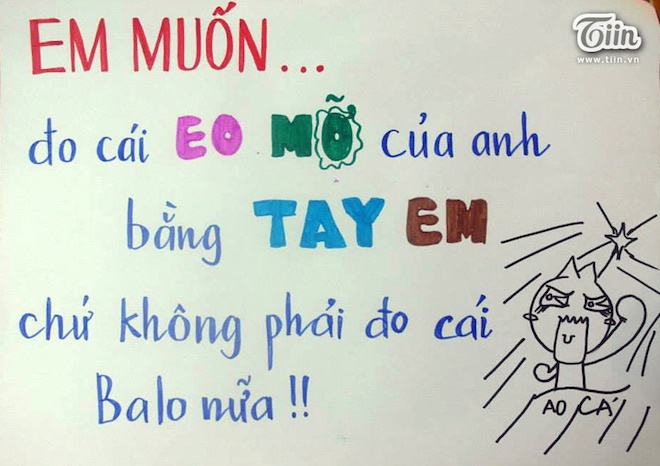 Tiin
www.tiin.vn
EM MUỐN...
đo cái EO MỠ của anh
bằng TAY EM
chứ không phải đo cái
Balo nữa!!
AO CÁ